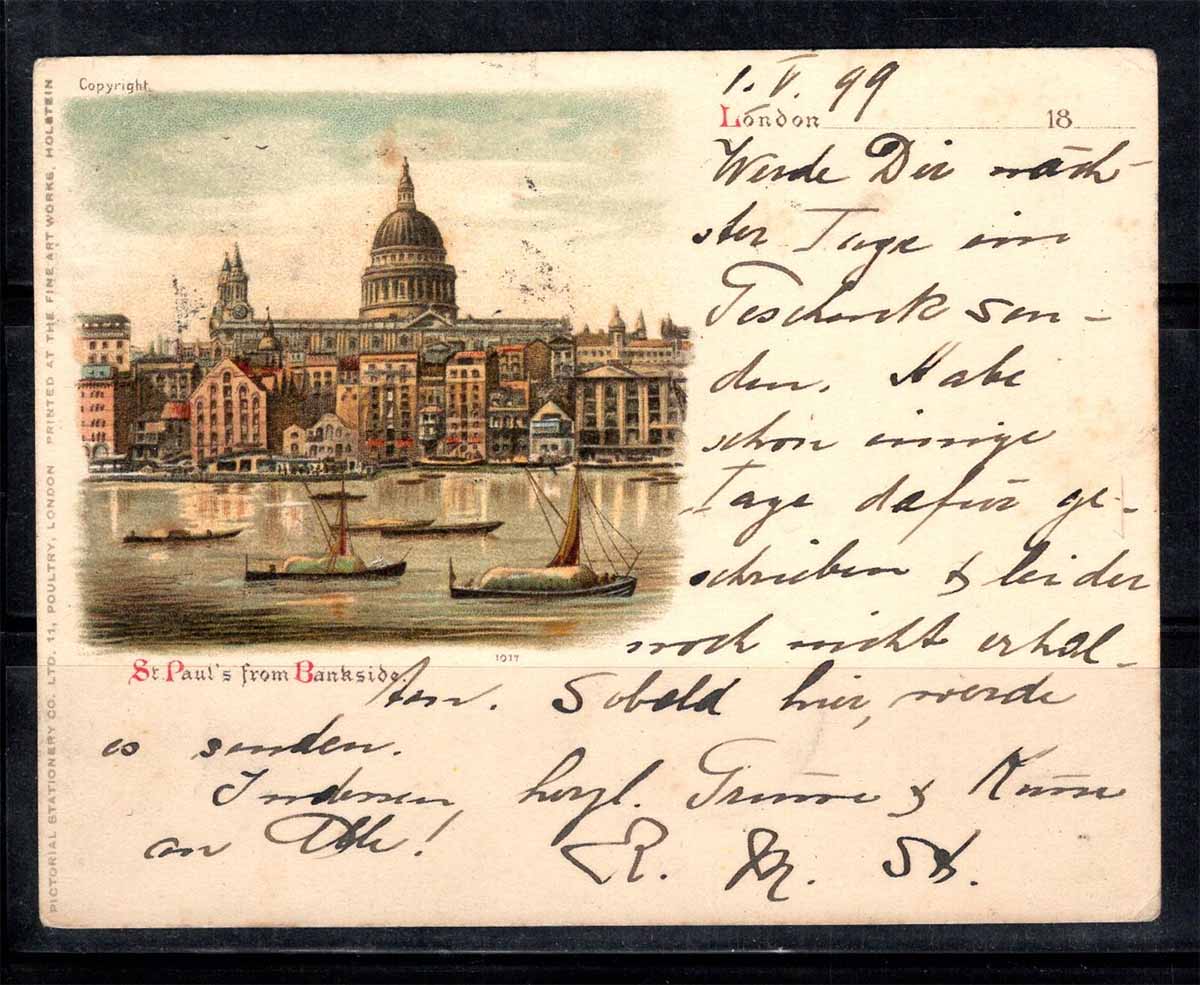 Copyright.
PICTORIAL STATIONERY CO. LTD. 11, POULTRY, LONDON PRINTED AT THE FINE ART WORKS, HOLSTEIN
St. Paul's from Bankside.
1017
1. V. 99
London 18
Werde Dir näch-
ster Tage ein
Geschenk sen-
den. Habe
schon einige
Tage dafür ge-
schrieben & leider
noch nicht erhal-
ten. Sobald hier, werde
es senden.
Indessen, herzl. Grüsse & Küsse
an Alle!
R. M.